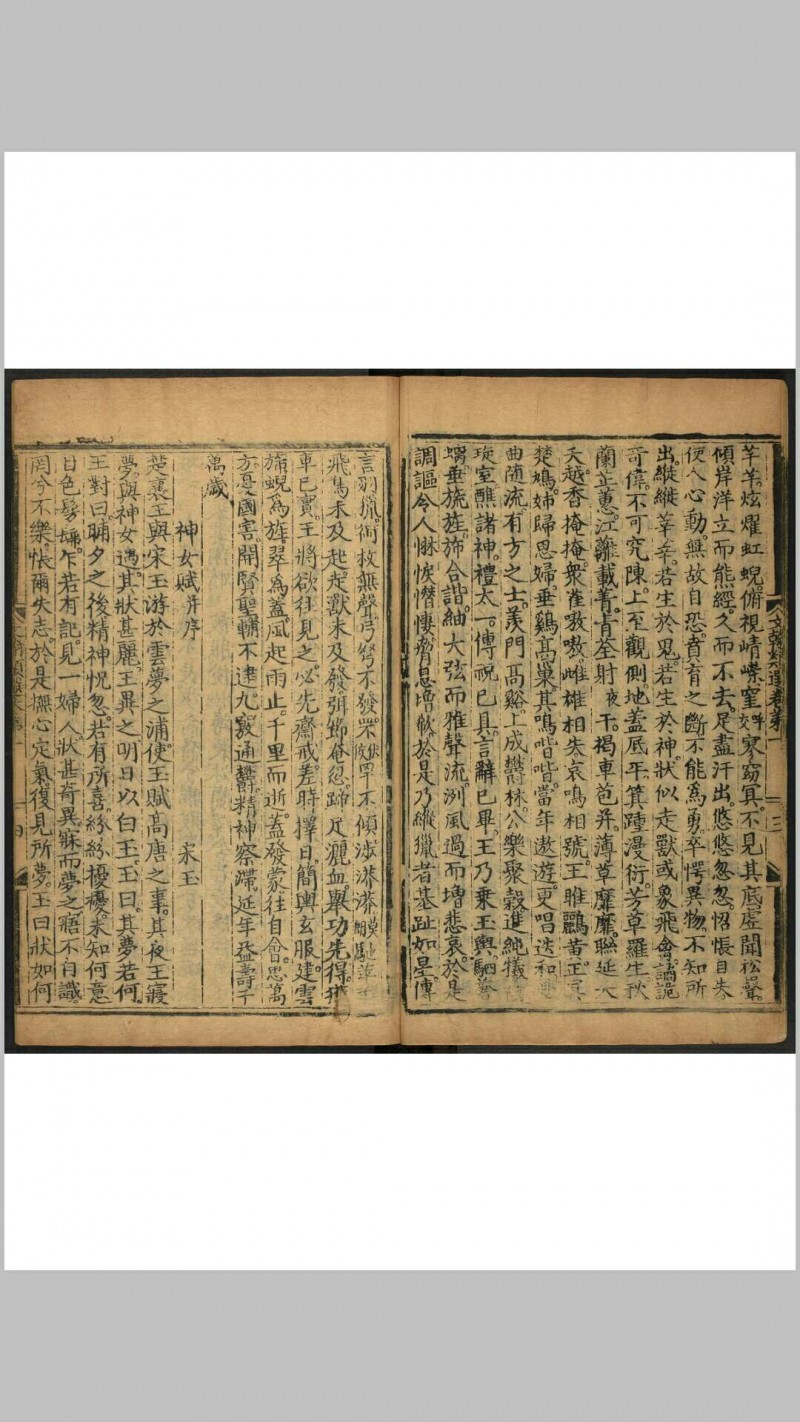 芊芊。炫燿虹蜺。俯視崝嶸。窐寥窈冥。不見其底。虛聞松聲。
傾岸洋洋。立而熊經。久而不去。足盡汗出。悠悠忽忽。怊悵自失。
使人心動。無故自恐。賁育之斷。不能爲勇。卒愕異物。不知所
出。縰縰莘莘。若生於鬼。若生於神。狀似走獸。或象飛禽。譎詭
奇偉。不可究陳。上至觀側。地蓋底平。箕踵漫衍。芳草羅生。秋
蘭茝蕙。江蘺載菁。青荃射干。揭車苞并。薄草靡靡。聯延夭
夭。越香掩掩。衆雀嗷嗷。雌雄相失。哀鳴相號。王雎鸝黃。正冥
楚鳩。姊歸思婦。垂鷄高巢。其鳴喈喈。當年遨遊。更唱迭和。
曲隨流。有方之士。羨門高谿。上成鬱林。公樂聚穀。進純犧。
琁室。醮諸神。禮太一。傳祝已具。言辭已畢。王乃乘玉輿。駟
螭。垂旒旌。旆合諧。紬大弦而雅聲流。洌風過而增悲哀。於是
調謳。令人惏悷憯悽。脅息增欷。於是乃縱獵者。基趾如星。傳
言羽獵。銜枚無聲。弓弩不發。罘罕不傾。涉漭漭。馳苹
飛鳥未及起。走獸未及發。弭節奄忽。蹄足灑血。舉功先得。獲
車已實。王將欲往見之。必先齋戒。差時擇日。簡輿玄服。建雲
旆。蜺爲旌。翠爲蓋。風起雨止。千里而逝。蓋發蒙。往自會。思萬
方。憂國害。開賢聖。輔不逮。九竅通鬱。精神察滯。延年益壽千
萬歲。
神女賦并序 宋玉
楚襄王與宋玉游於雲夢之浦。使玉賦高唐之事。其夜王寢。
夢與神女遇。其狀甚麗。王異之。明日以白玉。玉曰。其夢若何。
王對曰。晡夕之後。精神怳忽。若有所喜。紛紛擾擾。未知何意。
目色髣髴。乍若有記。見一婦人。狀甚奇異。寐而夢之。寤不自識。
罔兮不樂。悵爾失志。於是撫心定氣。復見所夢。玉曰。狀如何